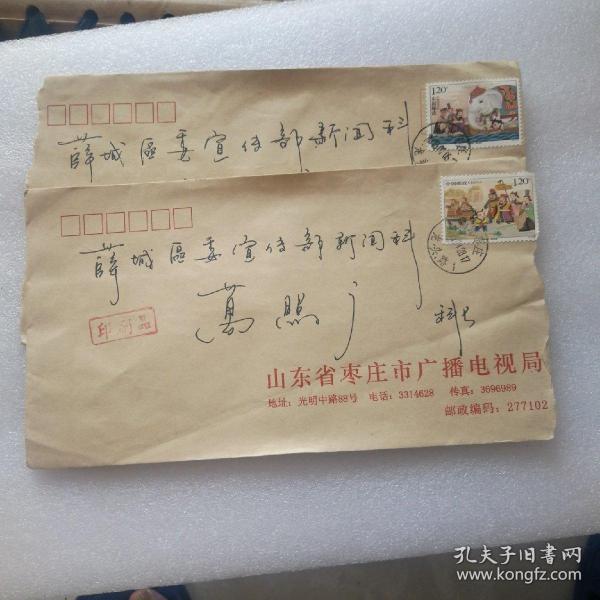 120
中国邮政
薛城區委宣传部新闻科
120
中国邮政
薛城區委宣传部新闻科
葛照广
科长
印刷品
山东省枣庄市广播电视局
地址：光明中路88号 电话：3314628 传真：3696989
邮政编码：277102
孔夫子旧书网
www.kongfz.com